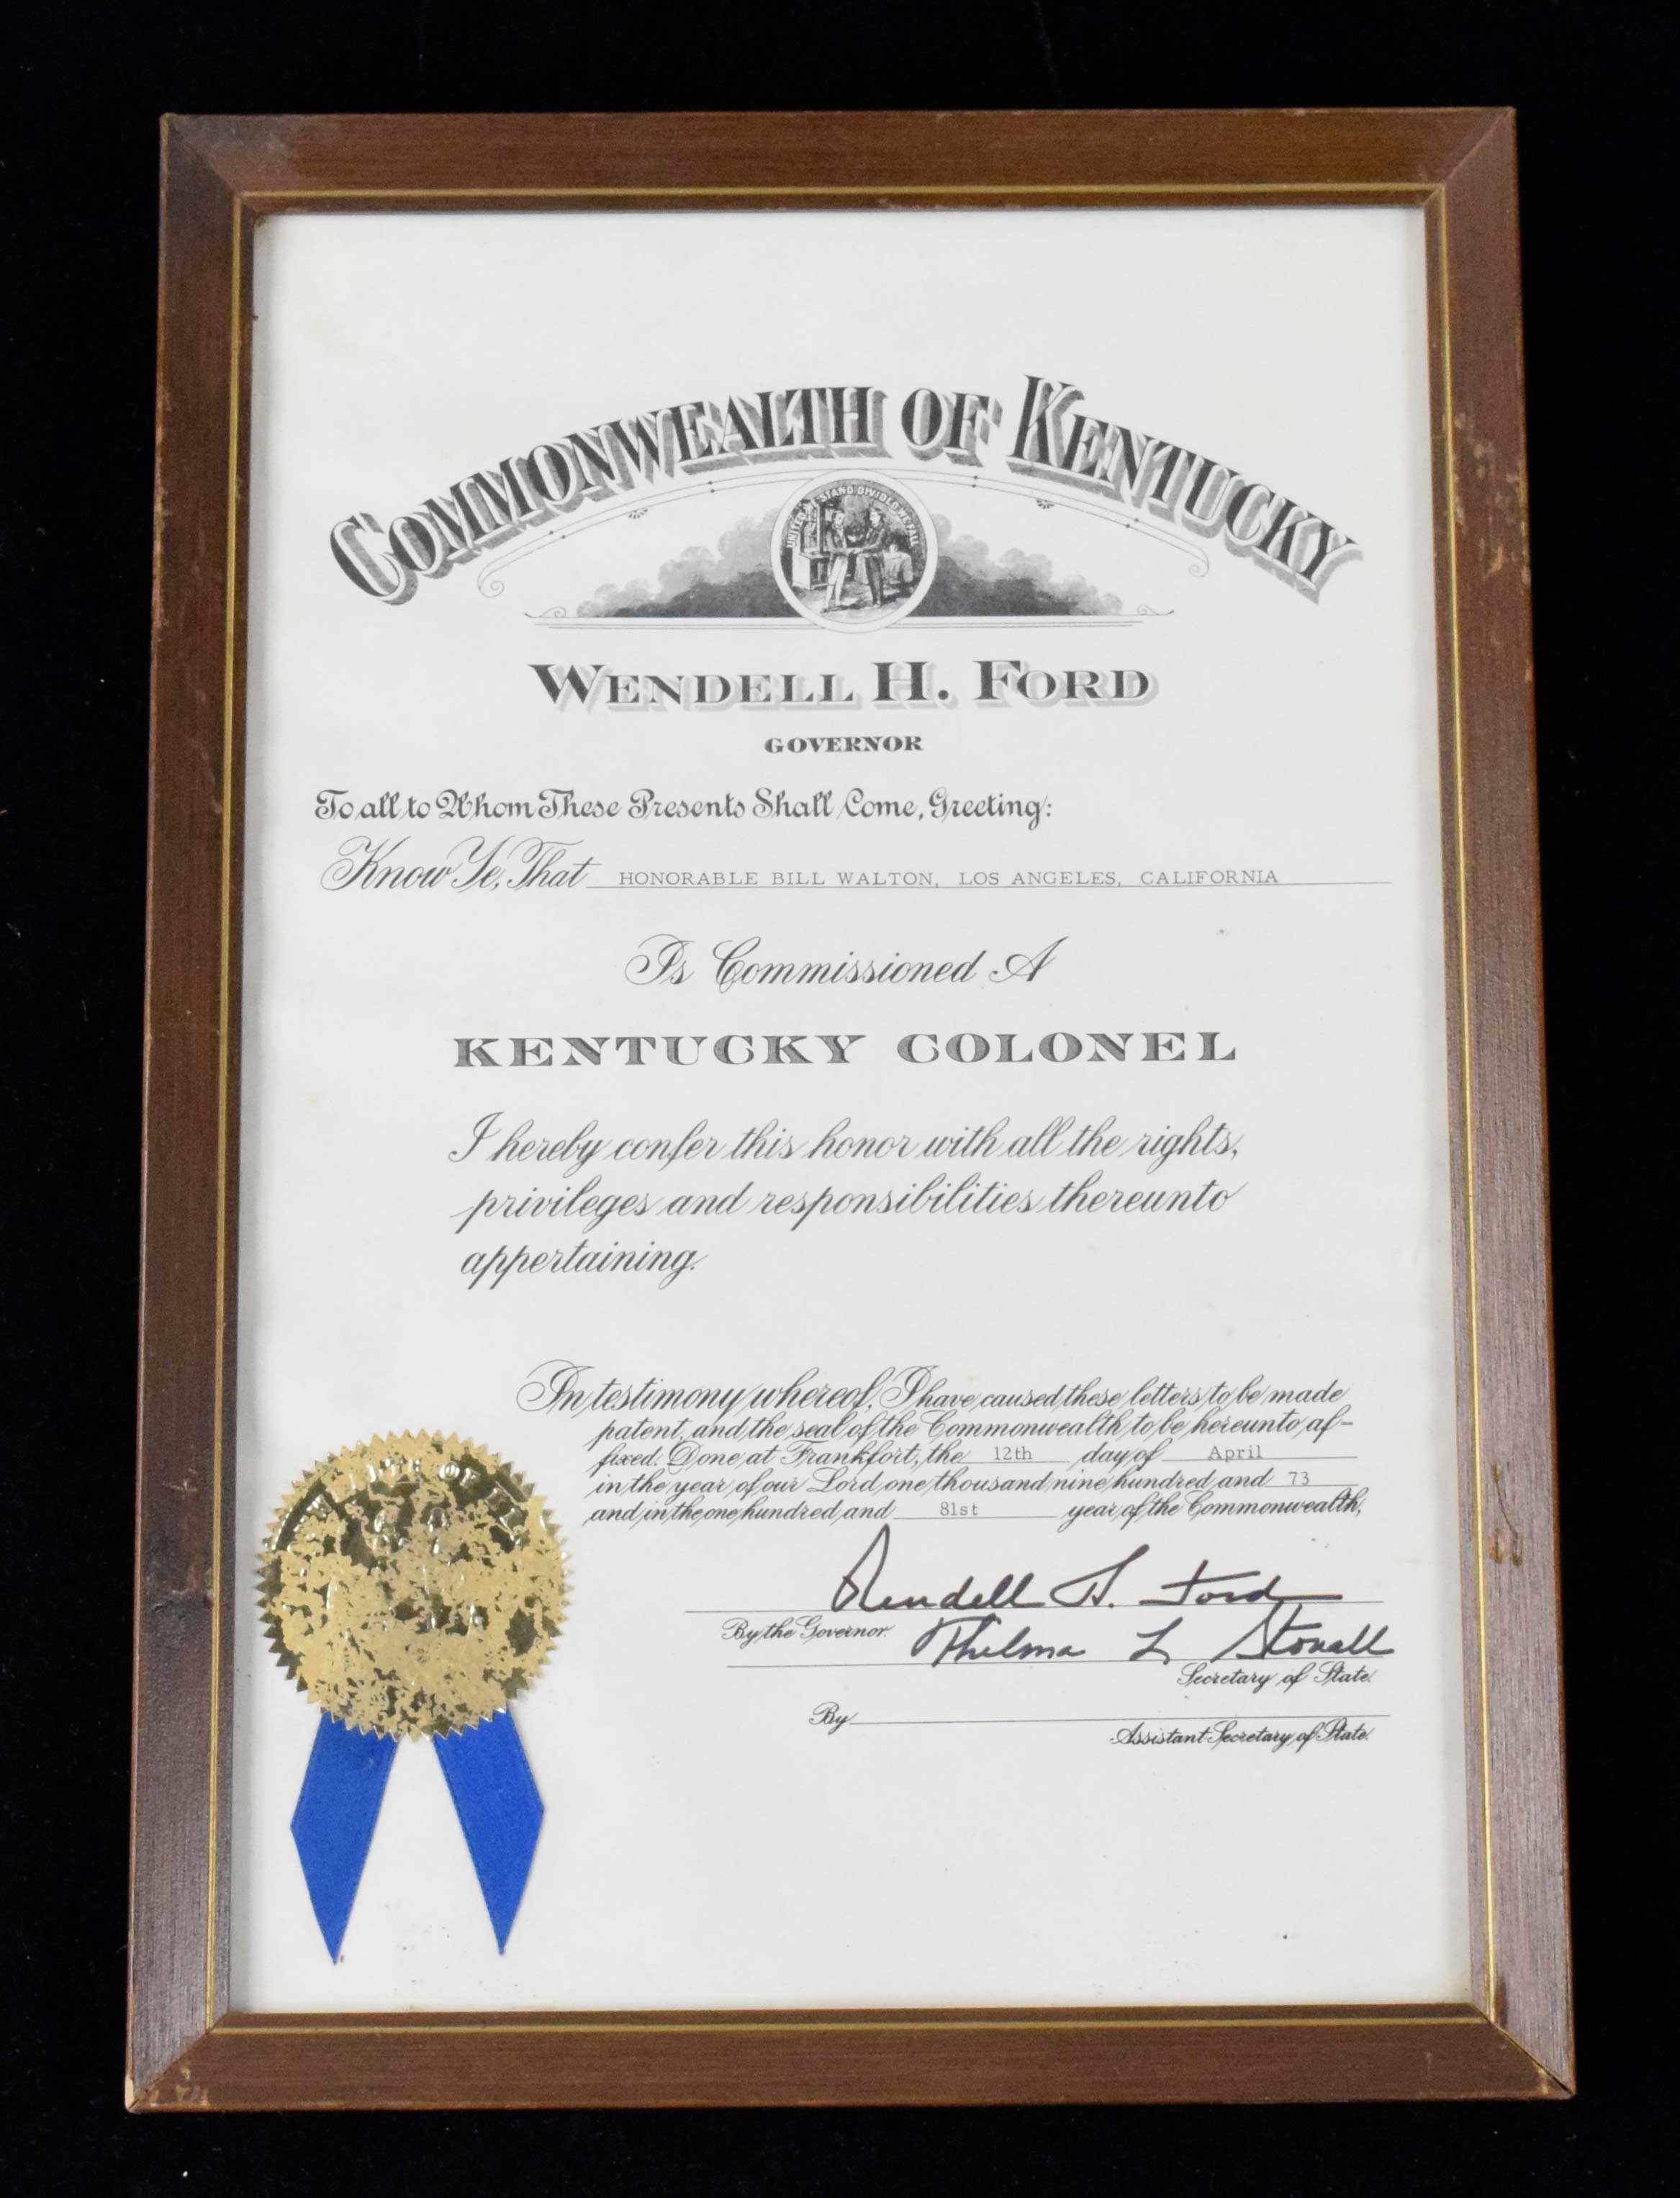 COMMONWEALTH OF KENTUCKY
UNITED WE STAND DIVIDED WE FALL
WENDELL H. FORD
GOVERNOR
To all to Whom These Presents Shall Come, Greeting:
Know Ye, That HONORABLE BILL WALTON, LOS ANGELES, CALIFORNIA
Is Commissioned A
KENTUCKY COLONEL
I hereby confer this honor with all the rights,
privileges and responsibilities thereunto
appertaining.
In testimony whereof, I have caused these letters to be made
patent, and the seal of the Commonwealth to be hereunto af-
fixed. Done at Frankfort, the 12th day of April
in the year of our Lord one thousand nine hundred and 73
and in the one hundred and 81st year of the Commonwealth,
Wendell H. Ford
By the Governor.
Thelma L Stovall
Secretary of State.
By
Assistant Secretary of State.